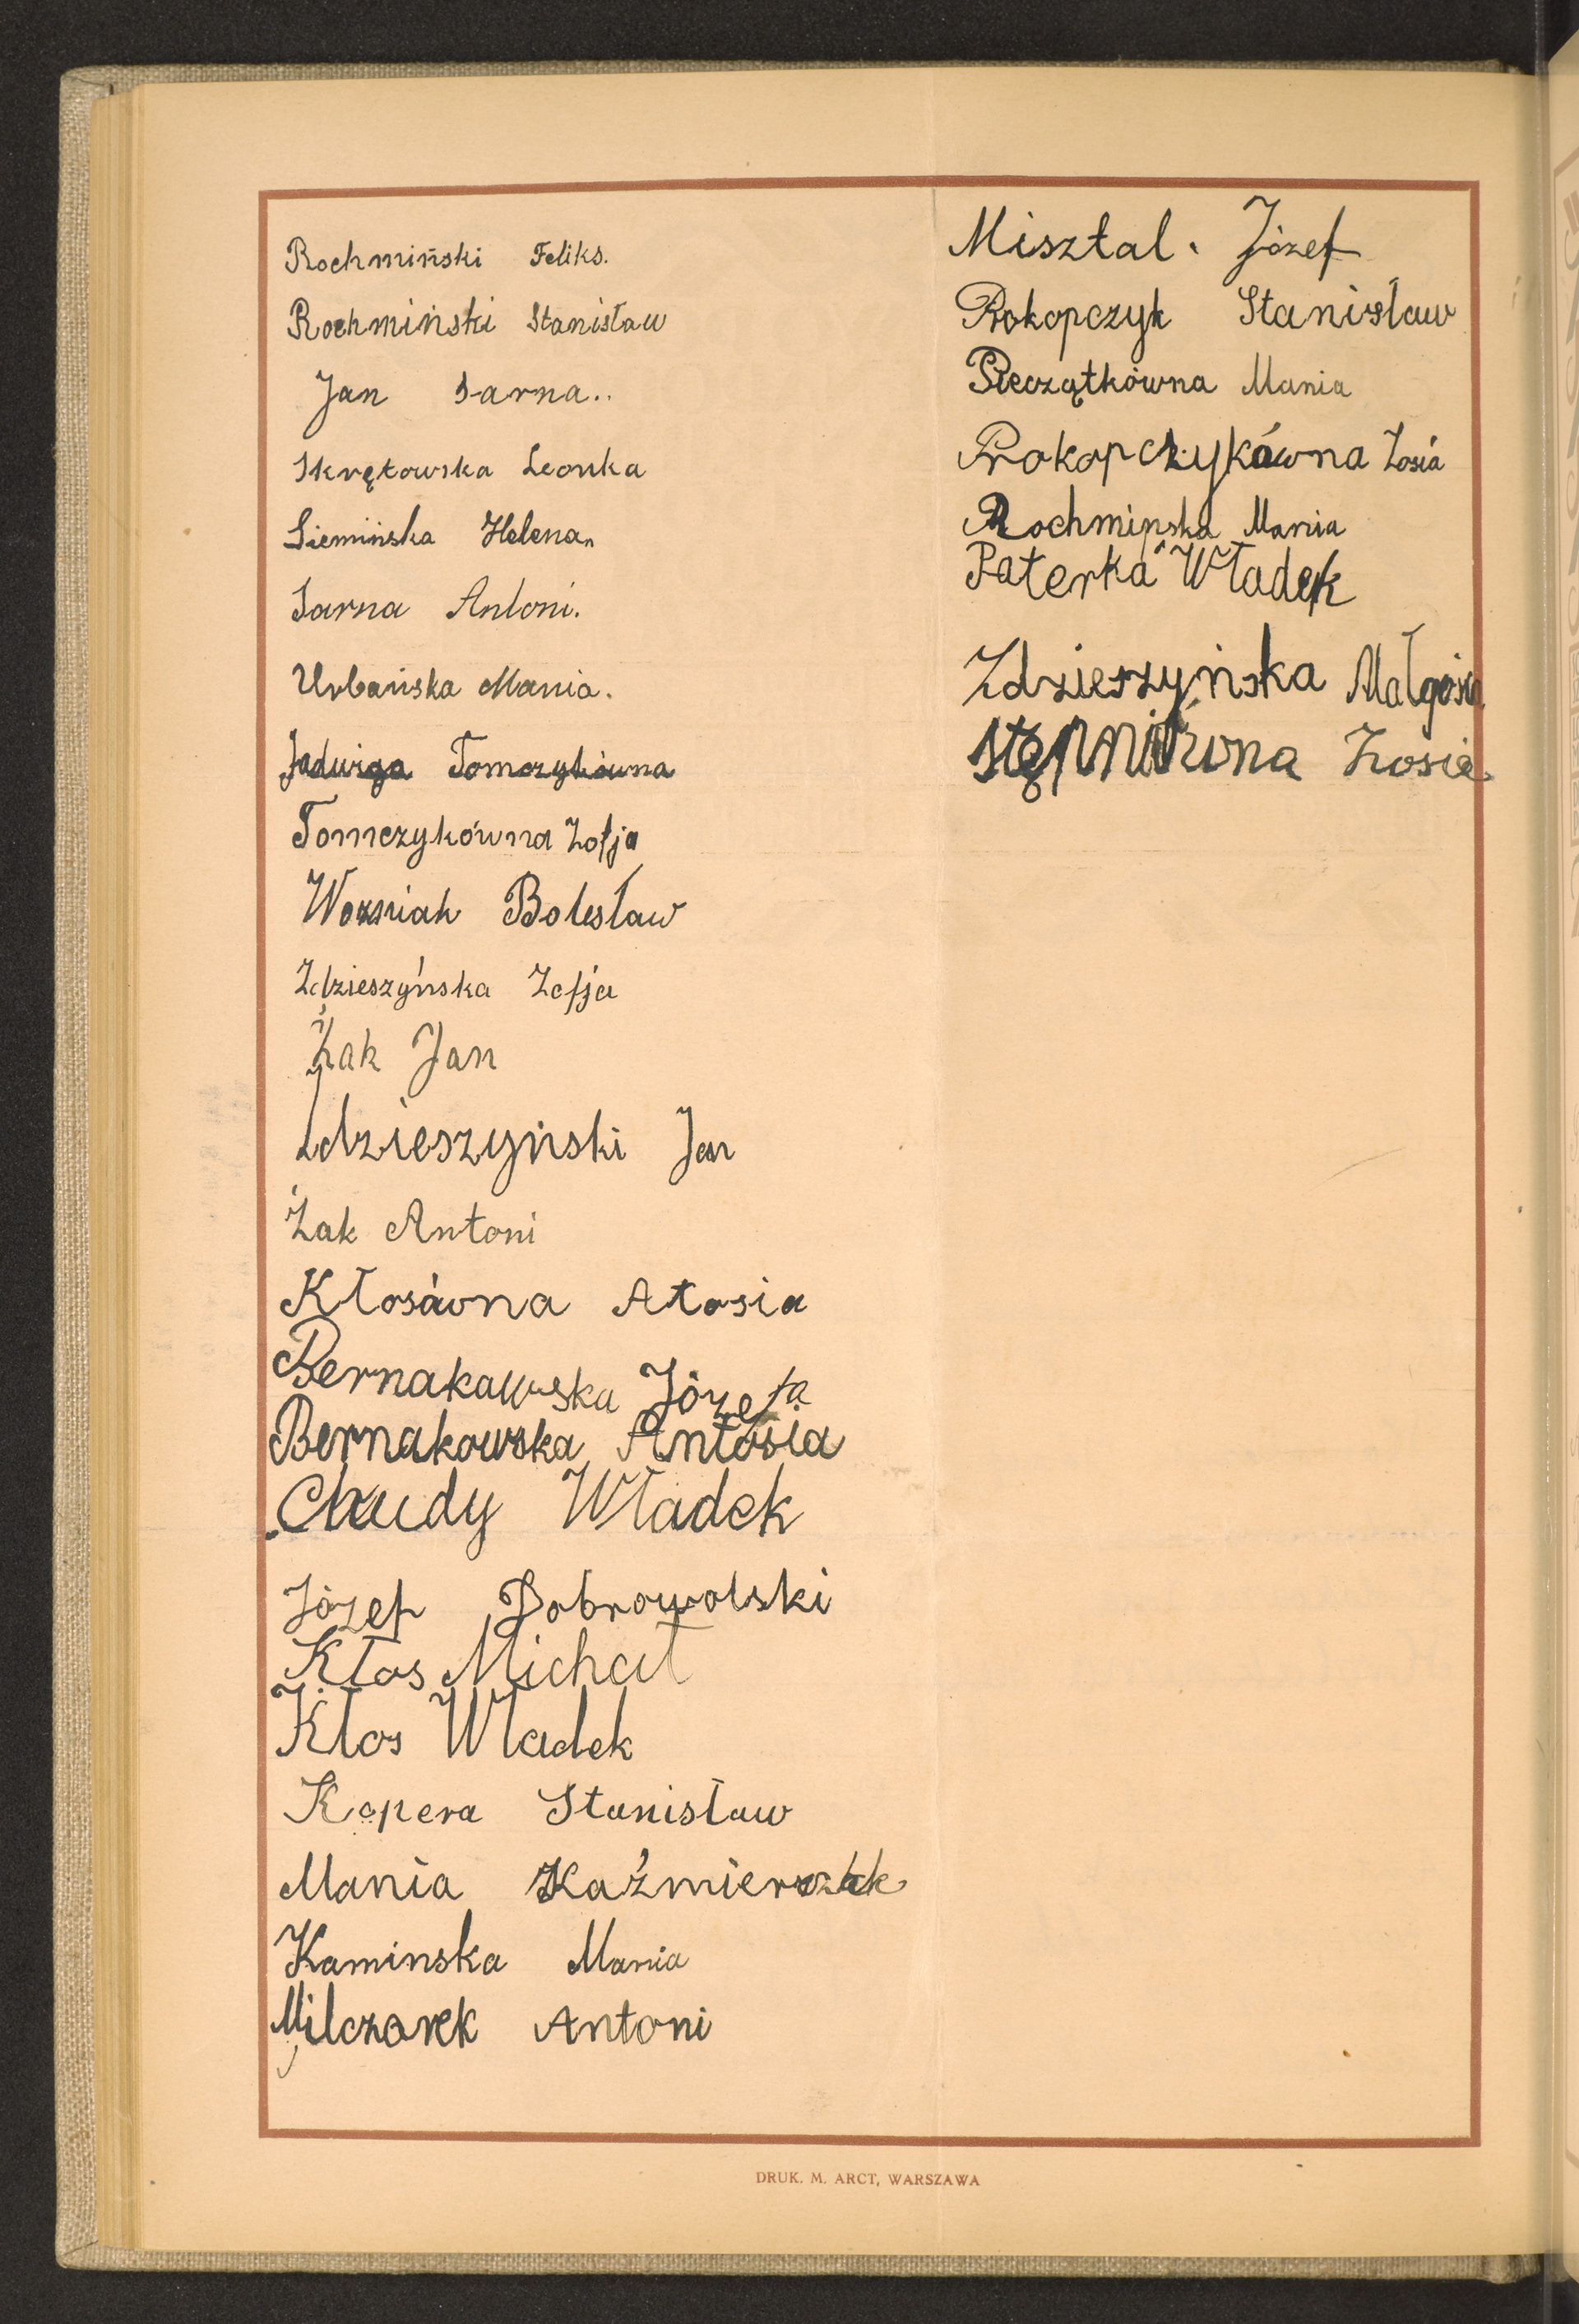 Rochmiński Feliks.
Rochmiński Stanisław
Jan Sarna..
Skrętowska Leonka
Siemińska Helena
Sarna Antoni.
Urbańska Mania.
Jadwiga Tomczykówna
Tomczykówna Zofja
Wozniak Bolesław
Zdzieszyńska Zofja
Żak Jan
Zdzieszyński Jan
Żak Antoni
Kłosówna Atosia
Bernakawska Józefa
Bernakowska Antosia
Chudy Władek
Józef Dobrowolski
Kłos Michał
Kłos Władek
Kopera Stanisław
Mania Kaźmierczak
Kaminska Mania
Milczarek Antoni
Misztal. Józef
Prokopczyk Stanisław
Pieczątkówna Mania
Prokopczykówna Zosia
Rochmińska Mania
Paterka Władek
Zdzieszyńska Małgosia
Zosia
DRUK. M. ARCT, WARSZAWA